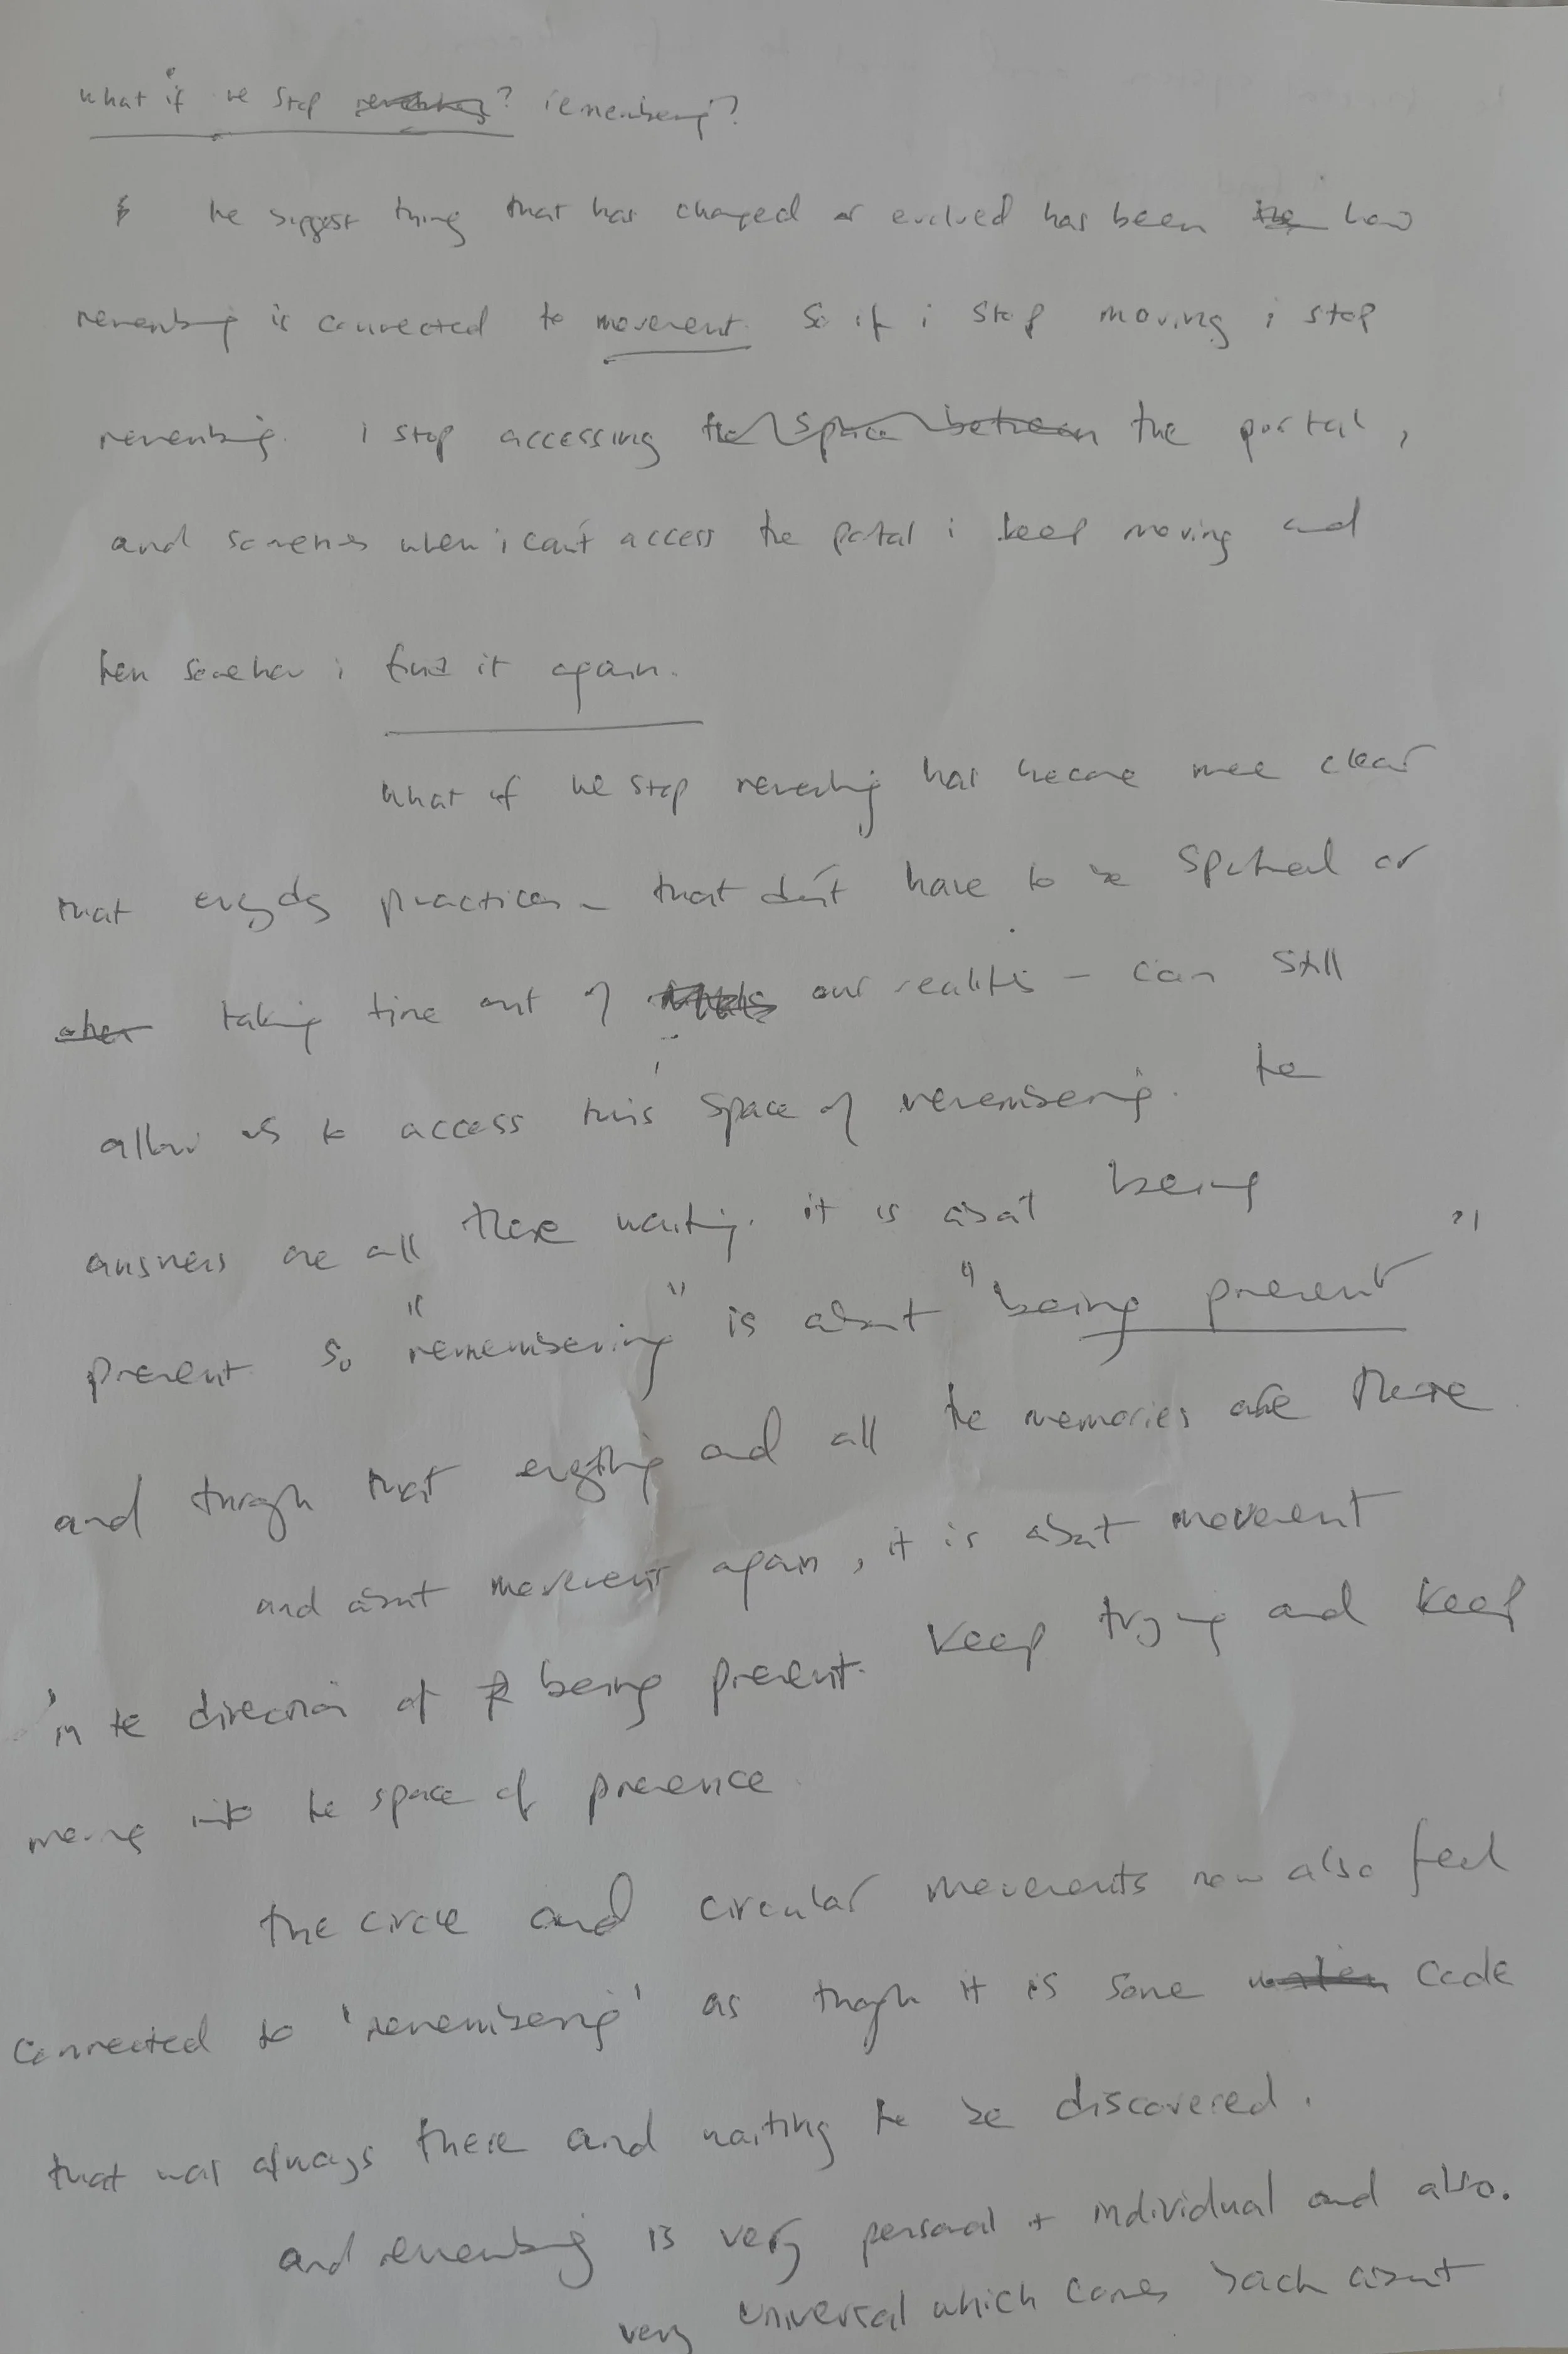 what if we stop ? remembering?
the biggest thing that has changed or evolved has been how
remembering is connected to movement. So if i stop moving i stop
remembering. i stop accessing the space between the portal,
and sometimes when i can't access the portal i keep moving and
then somehow i find it again.
what if we stop remembering has become more clear
that everyday practices - that don't have to be spiritual or
taking time out of our realities - can still
allow us to access this space of remembering. the
answers are all there waiting. it is about being
present so "remembering" is about "being present"
and through that everything and all the memories are there
and about movement again, it is about movement
in the direction of being present. Keep trying and keep
moving into the space of presence.
the circle and circular movements now also feel
connected to 'remembering' as though it is some code
that was always there and waiting to be discovered.
and remembering is very personal + individual and also.
very universal which comes back about